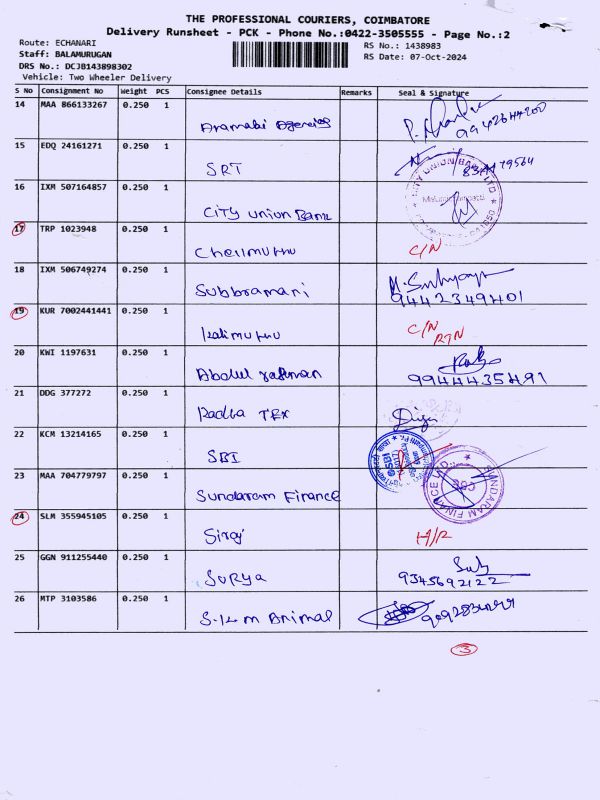 THE PROFESSIONAL COURIERS, COIMBATORE
Delivery Runsheet - PCK - Phone No.:0422-3505555 - Page No.:2
Route: ECHANARI
RS No.: 1438983
Staff: BALAMURUGAN
RS Date: 07-Oct-2024
DRS No.: DCJB143898302
Vehicle: Two Wheeler Delivery
S No Consignment No Weight PCS Consignee Details Remarks Seal & Signature
14 MAA 866133267 0.250 1
Aramabi Agencies
15 EDQ 24161271 0.250 1
SRT
16 IXM 507164857 0.250 1
CITY UNION BANK LTD
City Union Bank
17 TRP 1023948 0.250 1
Chellmuthu C/N
18 IXM 506749274 0.250 1
Subbramani
9442349401
19 KUR 7002441441 0.250 1
Kalimuthu C/N
RTN
20 KWI 1197631 0.250 1
Abdul rahman 9944435491
21 DDG 377272 0.250 1
Radha TEX Divya
22 KCM 13214165 0.250 1
SBI
SBI
23 MAA 704779797 0.250 1
SUNDARAM FINANCE LTD.
Sundaram Finance
24 SLM 355945105 0.250 1
Siraj H/R
25 GGN 911255440 0.250 1
Surya 9345692122
26 MTP 3103586 0.250 1
S.K.M Animal
3